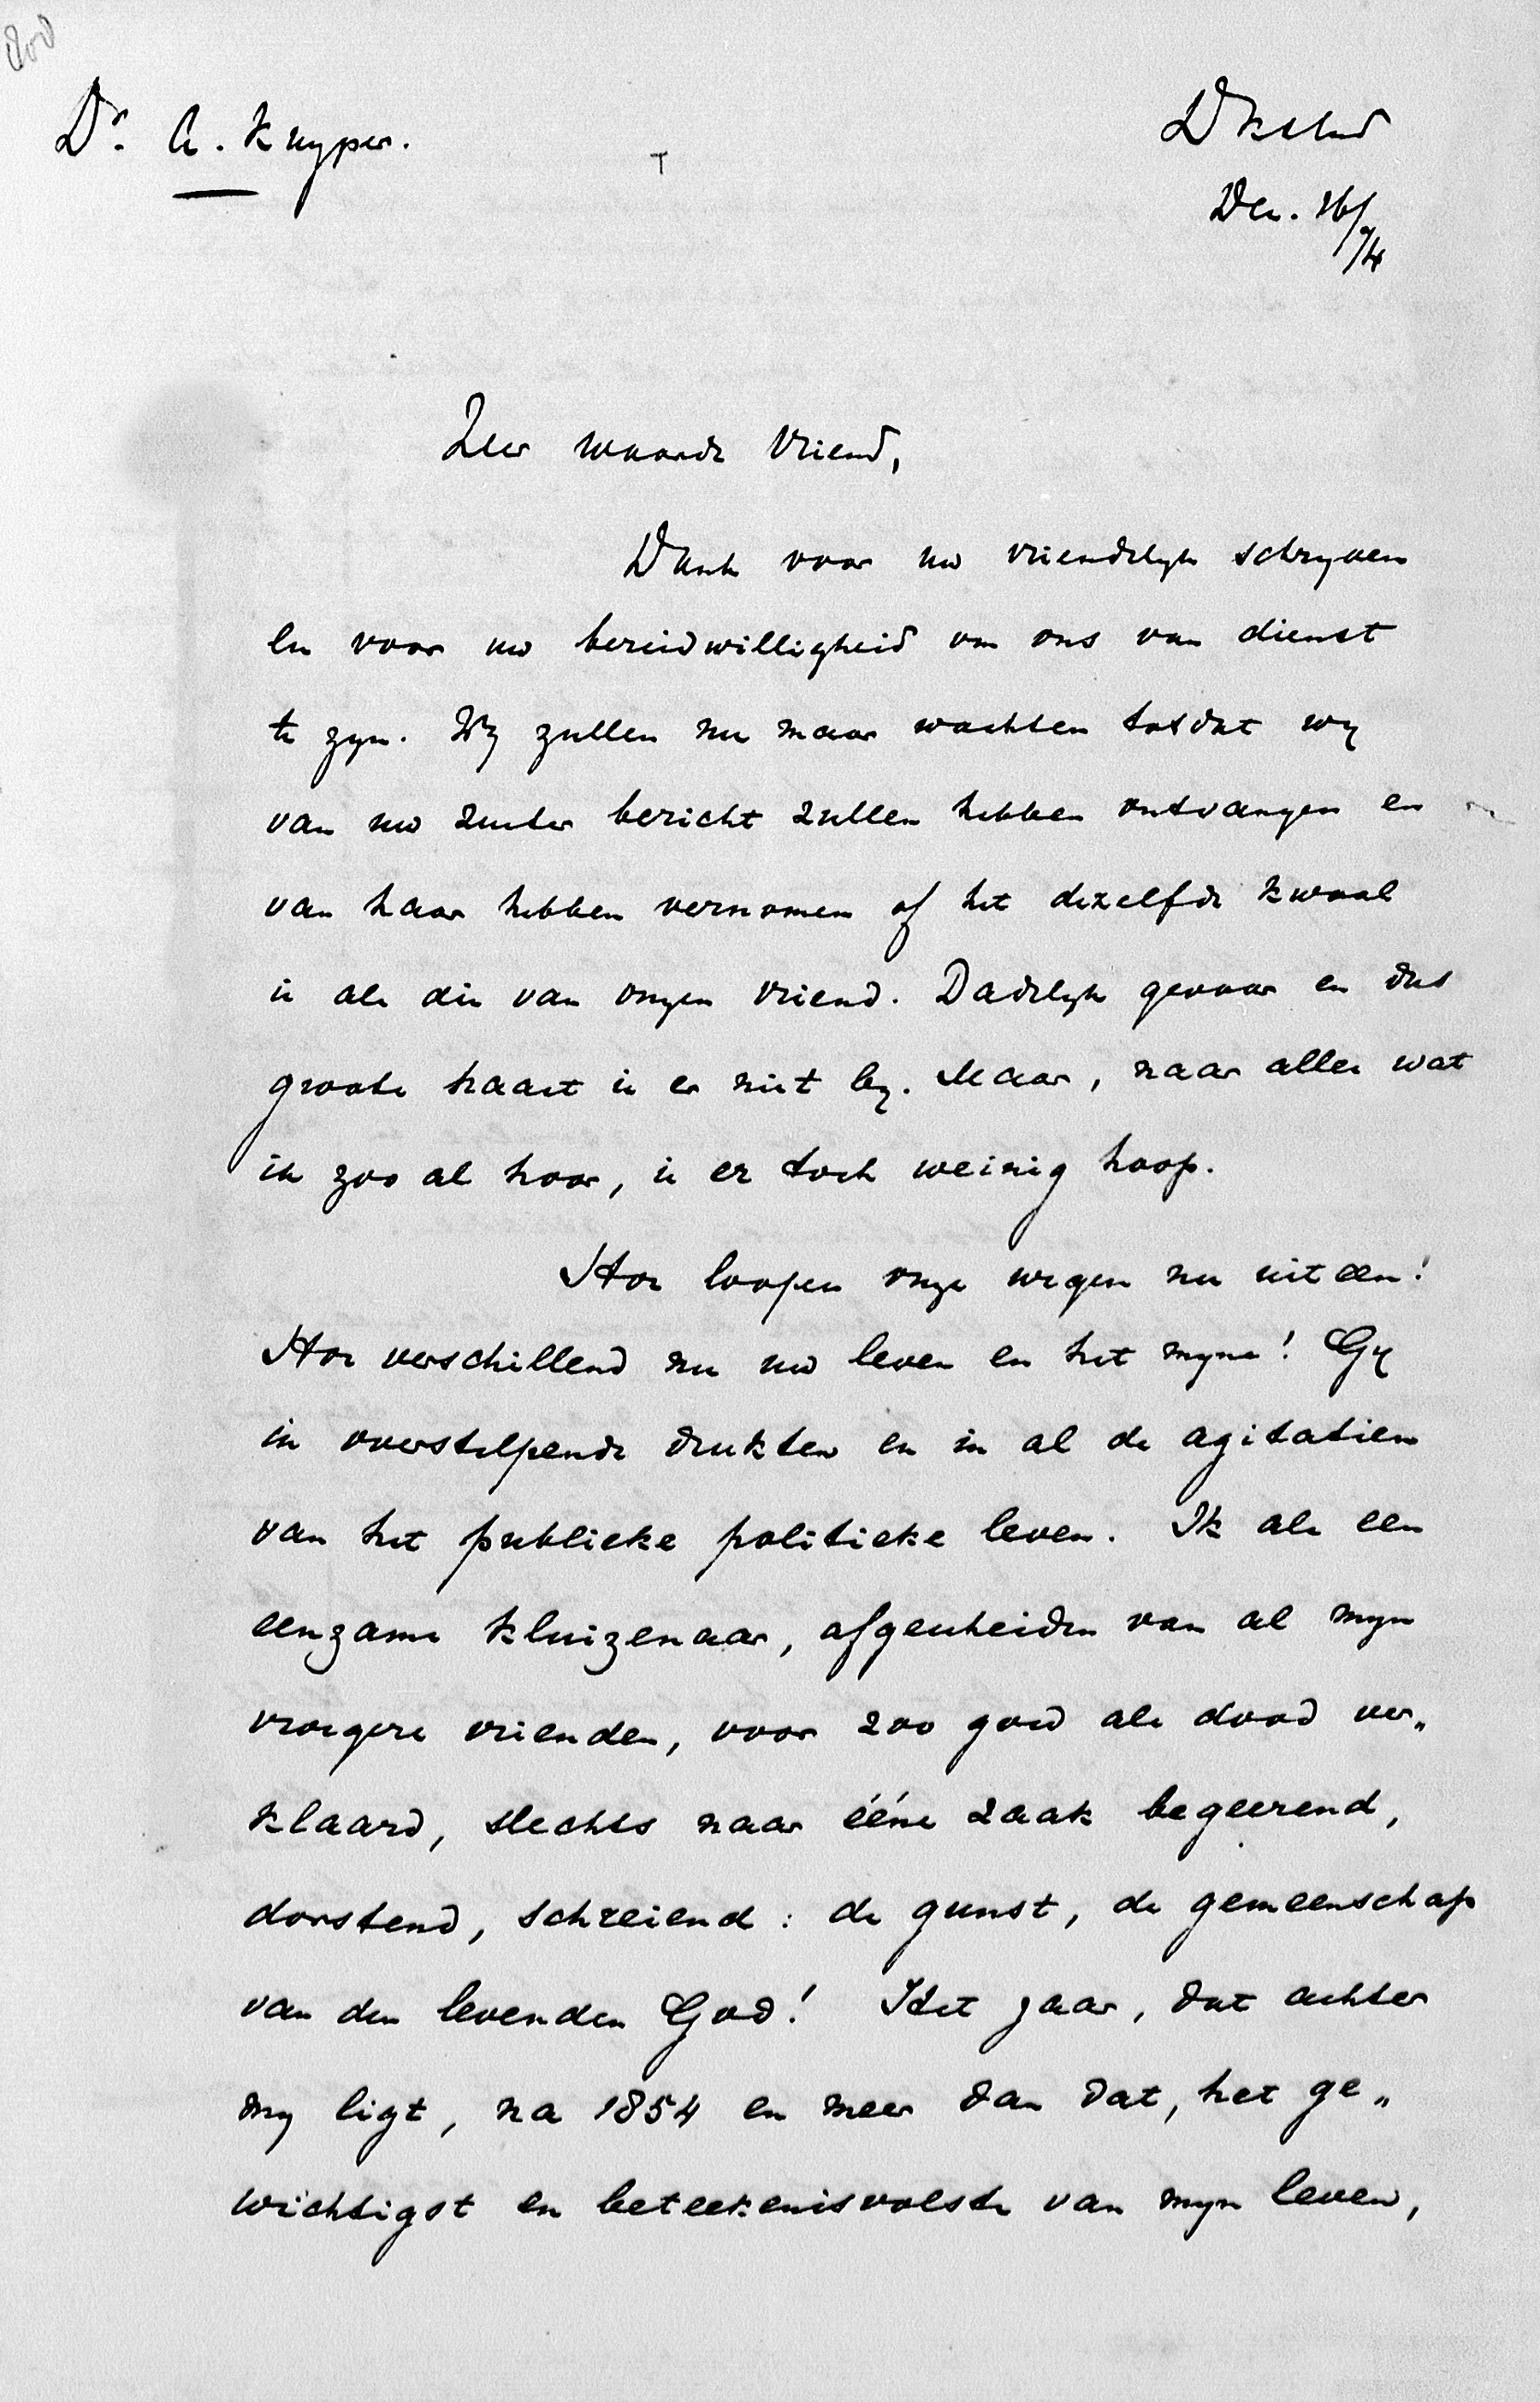 Dr. A. Kuyper.
Dec. 26/74
Zeer waarde Vriend,
Dank voor uw vriendelyk schryven
en voor uw bereidwilligheid om ons van dienst
te zyn. Wy zullen nu maar wachten totdat wy
van uw zuster bericht zullen hebben ontvangen en
van haar hebben vernomen of het dezelfde kwaal
is als die van onzen vriend. Dadelyk gevaar en dus
groote haast is er niet by. Maar, naar alles wat
ik zoo al hoor, is er toch weinig hoop.
Hoe loopen onze wegen nu uiteen!
Hoe verschillend nu uw leven en het myne! Gy
in overstelpende drukten en in al de agitatien
van het publieke politieke leven. Ik als een
eenzame kluizenaar, afgescheiden van al myn
vroegere vrienden, voor zoo goed als dood ver„
klaard, slechts naar ééne zaak begeerend,
dorstend, schreiend: de gunst, de gemeenschap
van den levenden God! Het jaar, dat achter
my ligt, na 1854 en meer dan dat, het ge„
wichtigst en beteekenisvolste van myn leven,